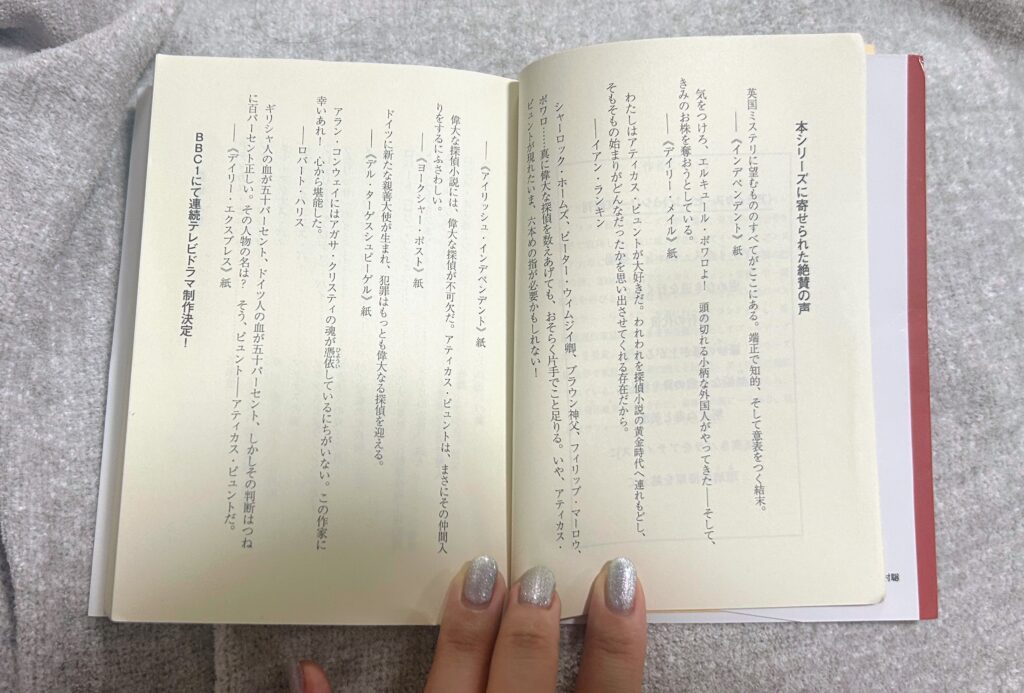 本シリーズに寄せられた絶賛の声
英国ミステリに望むもののすべてがここにある。端正で知的、そして意表をつく結末。
――《インデペンデント》紙
気をつけろ、エルキュール・ポワロよ！　頭の切れる小柄な外国人がやってきた――そして、
きみのお株を奪おうとしている。
――《デイリー・メイル》紙
わたしはアティカス・ピュントが大好きだ。われわれを探偵小説の黄金時代へ連れもどし、
そもそもの始まりがどんなだったかを思い出させてくれる存在だから。
――イアン・ランキン
シャーロック・ホームズ、ピーター・ウィムジイ卿、ブラウン神父、フィリップ・マーロウ、
ポワロ……真に偉大な探偵を数えあげても、おそらく片手でこと足りる。いや、アティカス・
ピュントが現れたいま、六本めの指が必要かもしれない！
――《アイリッシュ・インデペンデント》紙
偉大な探偵小説には、偉大な探偵が不可欠だ。アティカス・ピュントは、まさにその仲間入
りをするにふさわしい。
――《ヨークシャー・ポスト》紙
ドイツに新たな親善大使が生まれ、犯罪はもっとも偉大なる探偵を迎える。
――《デル・ターゲスシュピーゲル》紙
アラン・コンウェイにはアガサ・クリスティの魂が憑依（ひょうい）しているにちがいない。この作家に
幸いあれ！　心から堪能した。
――ロバート・ハリス
ギリシャ人の血が五十パーセント、ドイツ人の血が五十パーセント、しかしその判断はつね
に百パーセント正しい。その人物の名は？　そう、ピュント――アティカス・ピュントだ。
――《デイリー・エクスプレス》紙
ＢＢＣ１にて連続テレビドラマ制作決定！